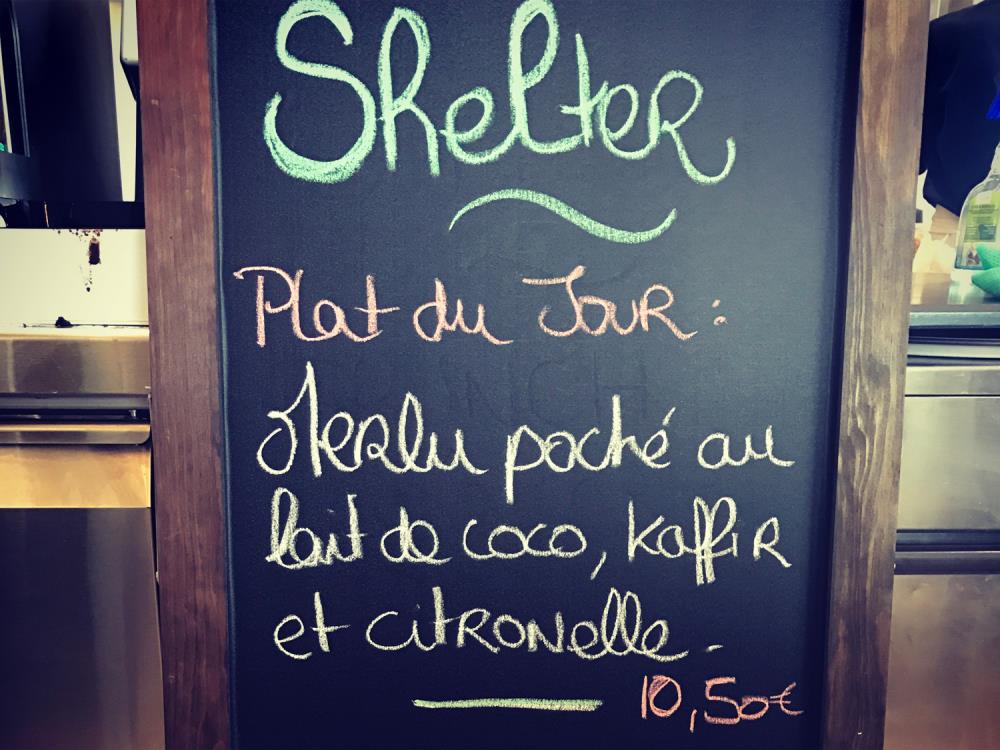 Shelter
Plat du Jour :
Merlu poché au
lait de coco, Kaffir
et citronelle.
10,50€